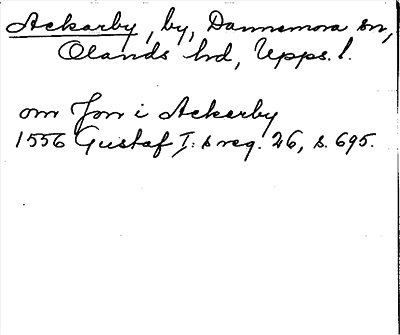 Ackarby, by, Dannemora sn,
Olands hd, Upps. l.
om Jon i Ackarby
1556 Gustaf I:s reg. 26, s. 695.